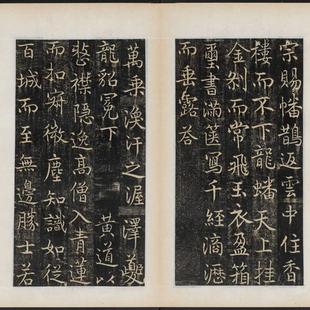 宗賜幡鵲返雲中住香
樓而不下龍蟠天上挂
金剎而常飛玉衣盈箱
璽書滿篋寫千經滴瀝
而垂露答
萬乘渙汗之渥澤夔
龍貂冕下　黃道以
整襟隱逸高僧入青蓮
而扣寂微塵知識如從
百城而至無邊勝士若